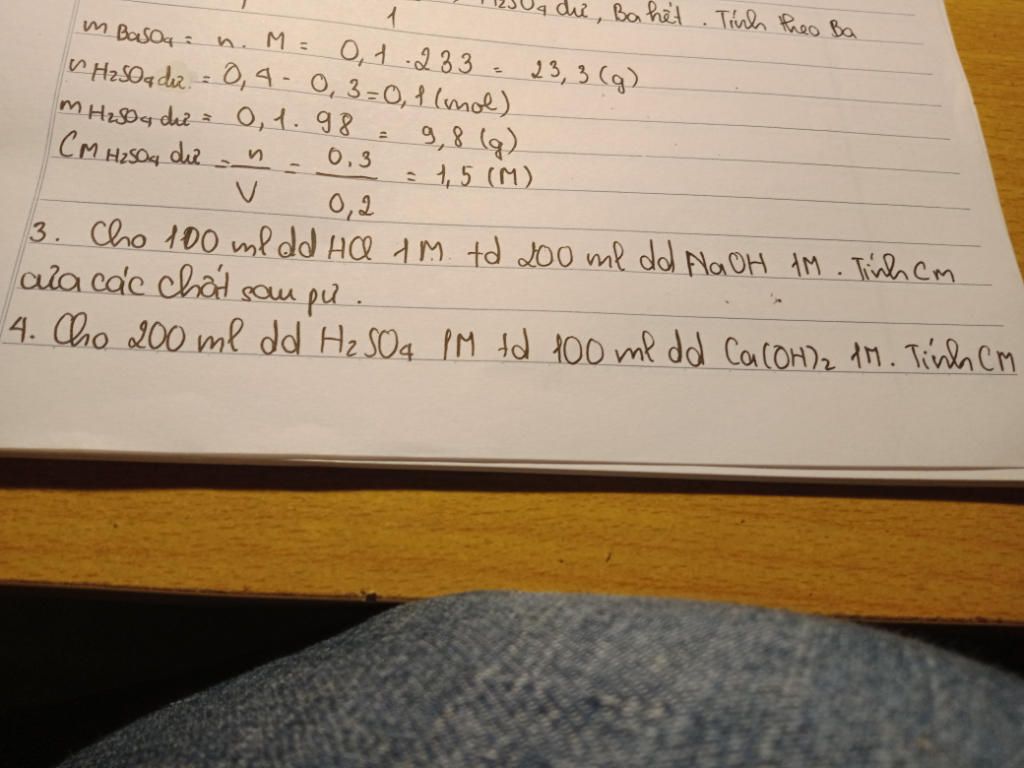 1 H2SO4 dư, Ba hết. Tính theo Ba
mBaSO4 = n. M = 0,1 .233 = 23,3 (g)
nH2SO4 dư = 0,4 - 0,3 = 0,1 (mol)
mH2SO4 dư = 0,1. 98 = 9,8 (g)
CM H2SO4 dư = n/V = 0.3/0,2 = 1,5 (M)
3. Cho 100 ml dd HCl 1M td 200 ml dd NaOH 1M. Tính CM
của các chất sau pứ.
4. Cho 200 ml dd H2SO4 1M td 100 ml dd Ca(OH)2 1M. Tính CM